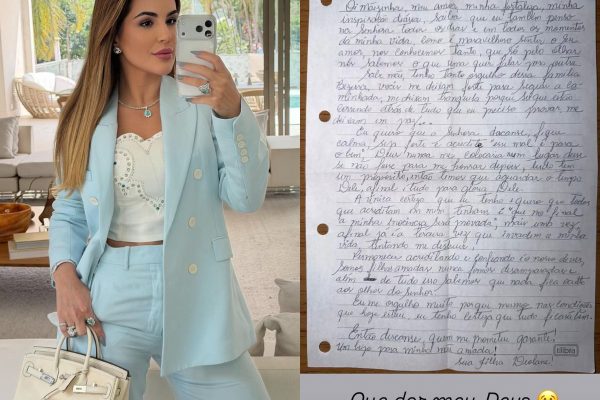 Oi mãezinha, meu amor, minha fortaleza, minha
inspiração diária, saiba que eu também penso
na senhora todos os dias e em todos os momentos
da minha vida, como é maravilhoso sentir o seu
amor, nos conhecemos tanto, que só pelo olhar
nós sabemos o que uma quer falar para outra.
mãe, tenho tanto orgulho dessa família
Bezerra, vocês me deixam forte para seguir a ca-
minhada, me deixam tranquila porque sei que estão
correndo atrás de tudo que eu preciso provar, me
deixam em paz.
Eu quero que a senhora descanse, fique
calma, seja forte e acredite, esse mal é para
o bem. Deus nunca me colocaria num lugar desse
se não fosse para me honrar depois, tudo tem
um propósito, então temos que aguardar o tempo
Dele, afinal é tudo para glória Dele.
A única certeza que eu tenho e quero que todos
que acreditam em mim tenham é que no final
a minha inocência será provada, mais uma vez,
afinal já é a terceira vez que invadem a minha
vida, tentando me destruir.
Permaneça acreditando e confiando no nosso Deus,
somos filhas amadas nunca fomos desamparadas e
além de tudo isso sabemos que nada fica oculto
aos olhos do Senhor!
Eu me orgulho muito porque mesmo nas condições
que hoje estou, eu tenho certeza que tudo ficará bem.
Então descanse, quem me prometeu garante!
Um beijo para minha mãe amada!
Sua filha Deolane!
tilibra
Que dor meu Deus 😢